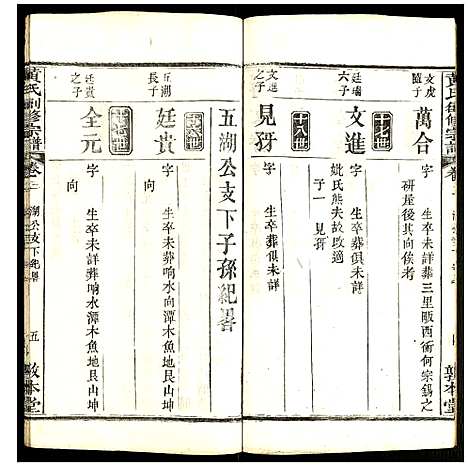 黃氏創修宗譜
文虎
隨子
萬合
字
生卒未詳葬三里畈西衝何宗錫之
研屋後其向俟考
十七世
廷瑞
六子
文進
字
生卒葬俱未詳
妣氏熊夫故改適
子一 見犽
十八世
文進
之子
見犽
字
生卒葬俱未詳
敦本堂
五湖公支下子孫紀畧
十六世
五湖
長子
廷貴
字 向
生卒未詳葬响水潭木魚地艮山坤
十七世
廷貴
之子
全元
字 向
生卒未詳葬响水潭木魚地艮山坤
黃氏創修宗譜
卷二
湖公支下紀畧
五
敦本堂